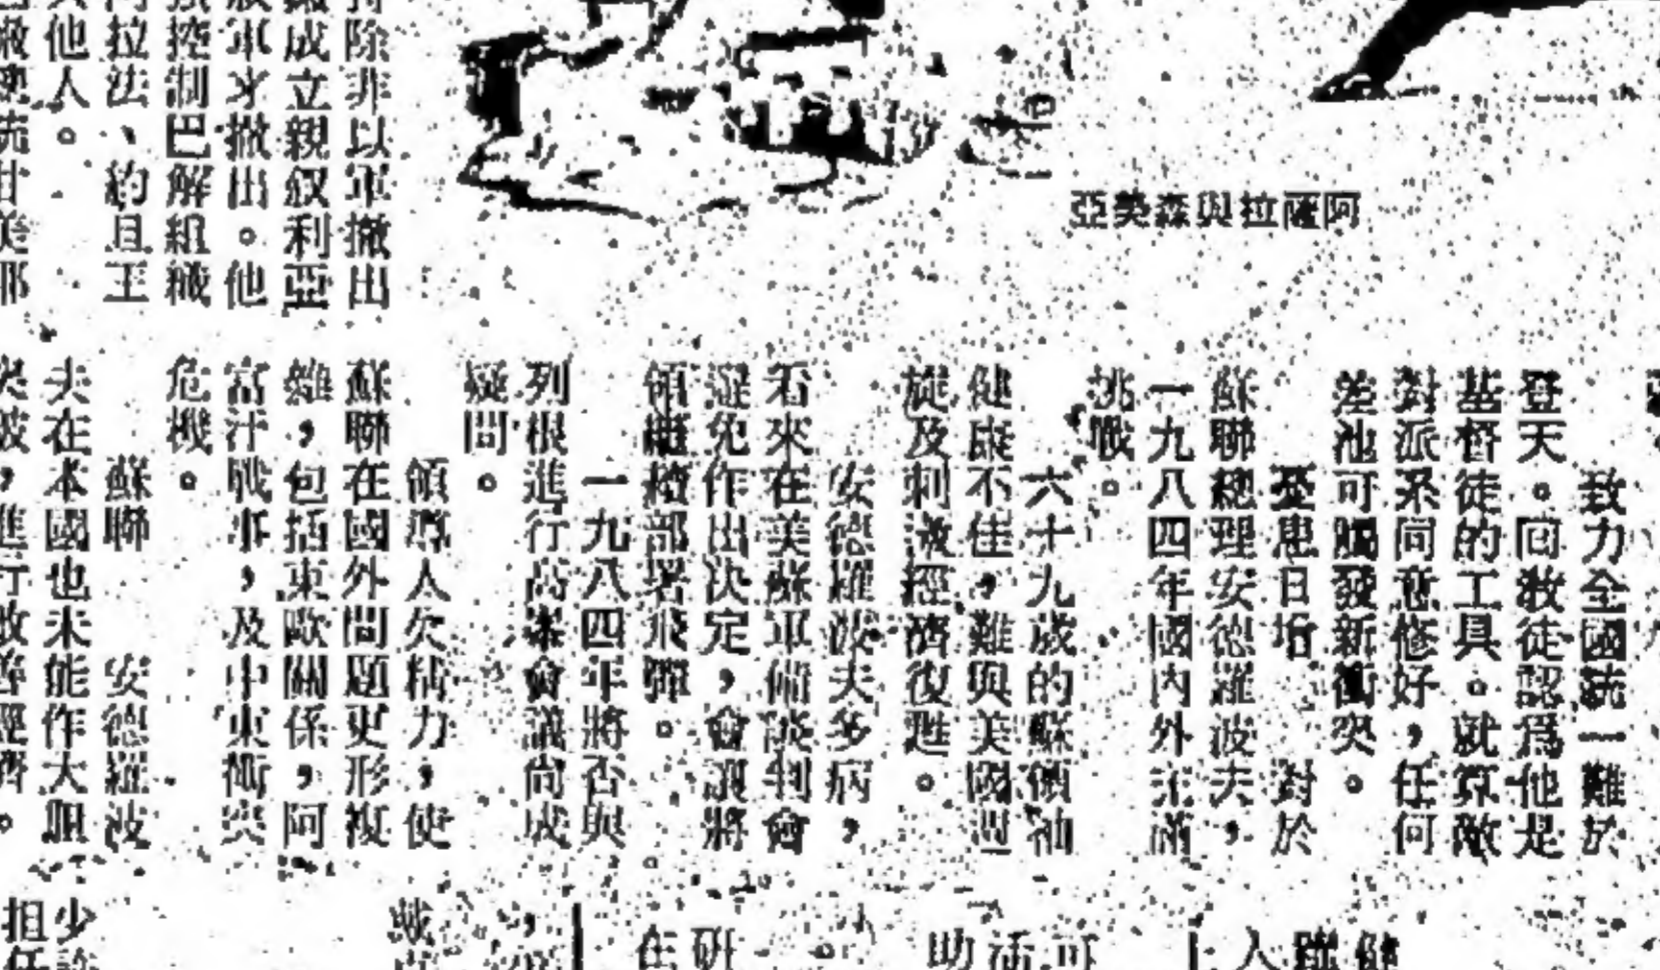 阿薩拉與森美亞
致力全國統一難於
登天。回教徒認爲他是
基督徒的工具。就算敵
對派系同意修好，任何
差池可觸發新衝突。
憂患日增　對於
蘇聯總理安德羅波夫，
一九八四年國內外充滿
挑戰。
六十九歲的蘇領袖
健康不佳，難與美國週
旋及刺激經濟復甦。
安德羅波夫多病，
看來在美蘇軍備談判會
避免作出決定，會讓將
領繼續部署飛彈。
一九八四年將否與
列根進行高峯會議尚成
疑問。
領導人欠精力，使
蘇聯在國外問題更形複
雜，包括東歐關係，阿
富汗戰事，及中東衝突
危機。
蘇聯　安德羅波
夫在本國也未能作大胆
突破，進行改善經濟。
持除非以軍撤出
成立親叙利亞
軍才撤出。他
控制巴解組織
拉法、約旦王
他人。